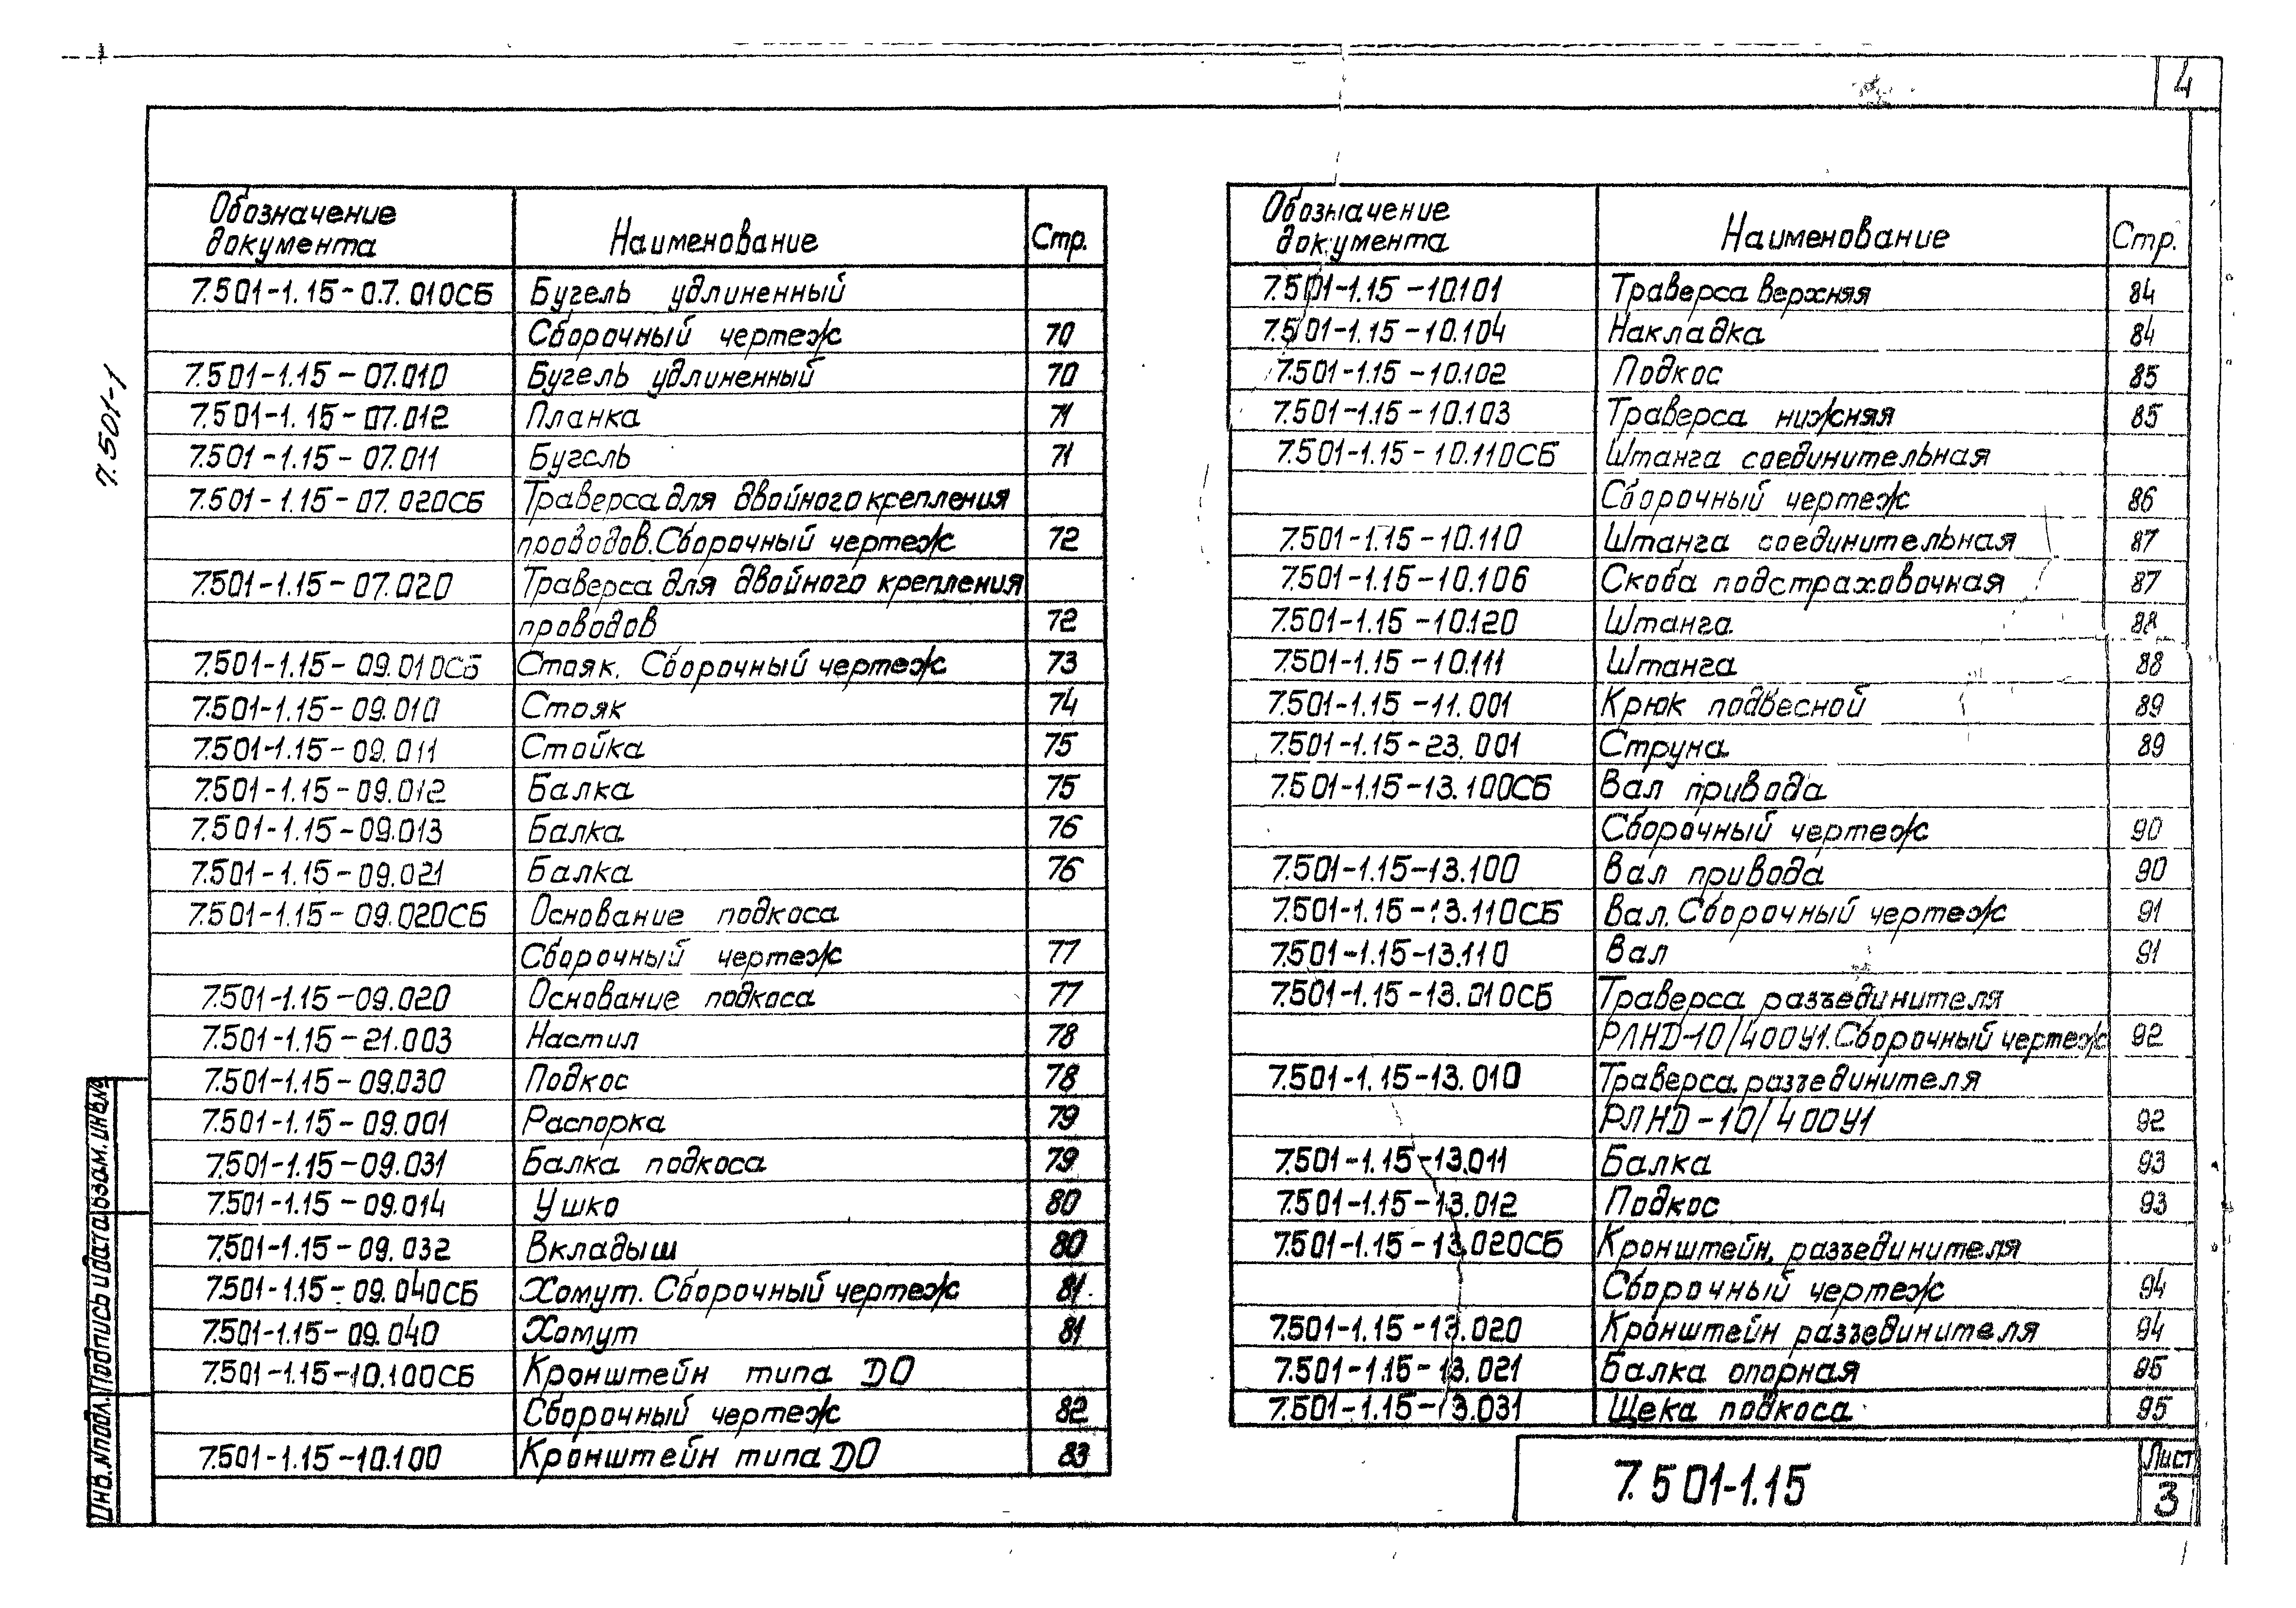 4
7.501-1
Обозначение документа Наименование Стр.
7.501-1.15-07.010СБ Бугель удлиненный
Сборочный чертеж 70
7.501-1.15-07.010 Бугель удлиненный 70
7.501-1.15-07.012 Планка 71
7.501-1.15-07.011 Бугель 71
7.501-1.15-07.020СБ Траверса для двойного крепления
проводов. Сборочный чертеж 72
7.501-1.15-07.020 Траверса для двойного крепления
проводов 72
7.501-1.15-09.010СБ Стояк. Сборочный чертеж 73
7.501-1.15-09.010 Стояк 74
7.501-1.15-09.011 Стойка 75
7.501-1.15-09.012 Балка 75
7.501-1.15-09.013 Балка 76
7.501-1.15-09.021 Балка 76
7.501-1.15-09.020СБ Основание подкоса
Сборочный чертеж 77
7.501-1.15-09.020 Основание подкоса 77
7.501-1.15-21.003 Настил 78
7.501-1.15-09.030 Подкос 78
7.501-1.15-09.001 Распорка 79
7.501-1.15-09.031 Балка подкоса 79
7.501-1.15-09.014 Ушко 80
7.501-1.15-09.032 Вкладыш 80
7.501-1.15-09.040СБ Хомут. Сборочный чертеж 81
7.501-1.15-09.040 Хомут 81
7.501-1.15-10.100СБ Кронштейн типа ДО
Сборочный чертеж 82
7.501-1.15-10.100 Кронштейн типа ДО 83
Обозначение документа Наименование Стр.
7.501-1.15-10.101 Траверса верхняя 84
7.501-1.15-10.104 Накладка 84
7.501-1.15-10.102 Подкос 85
7.501-1.15-10.103 Траверса нижняя 85
7.501-1.15-10.110СБ Штанга соединительная
Сборочный чертеж 86
7.501-1.15-10.110 Штанга соединительная 87
7.501-1.15-10.106 Скоба подстраховочная 87
7.501-1.15-10.120 Штанга 88
7.501-1.15-10.111 Штанга 88
7.501-1.15-11.001 Крюк подвесной 89
7.501-1.15-23.001 Струна 89
7.501-1.15-13.100СБ Вал привода
Сборочный чертеж 90
7.501-1.15-13.100 Вал привода 90
7.501-1.15-13.110СБ Вал. Сборочный чертеж 91
7.501-1.15-13.110 Вал 91
7.501-1.15-13.010СБ Траверса разъединителя
РЛНД-10/400У1. Сборочный чертеж 92
7.501-1.15-13.010 Траверса разъединителя
РЛНД-10/400У1 92
7.501-1.15-13.011 Балка 93
7.501-1.15-13.012 Подкос 93
7.501-1.15-13.020СБ Кронштейн. разъединителя
Сборочный чертеж 94
7.501-1.15-13.020 Кронштейн разъединителя 94
7.501-1.15-13.021 Балка опорная 95
7.501-1.15-13.031 Щека подкоса 95
Инв.№подл. Подпись и дата Взам. инв.№
7.501-1.15
Лист
3